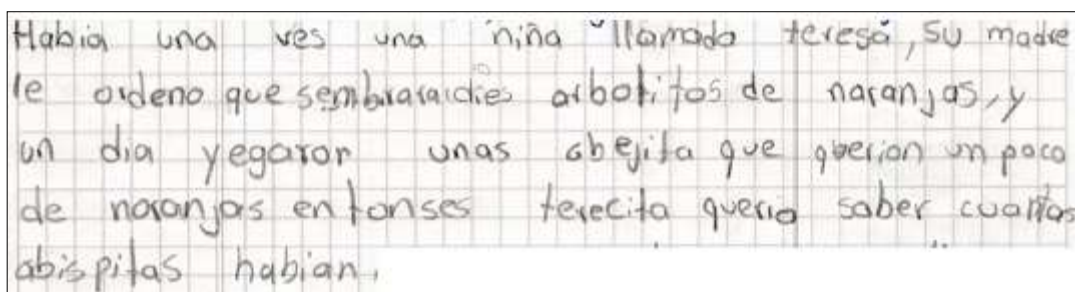 Habia una ves una niña llamada teresa, su madre
le ordeno que sembrara dies arbolitos de naranjas, y
un dia yegaron unas abejita que querion un poco
de naranjas entonses terecita queria saber cuantas
abispitas habian.